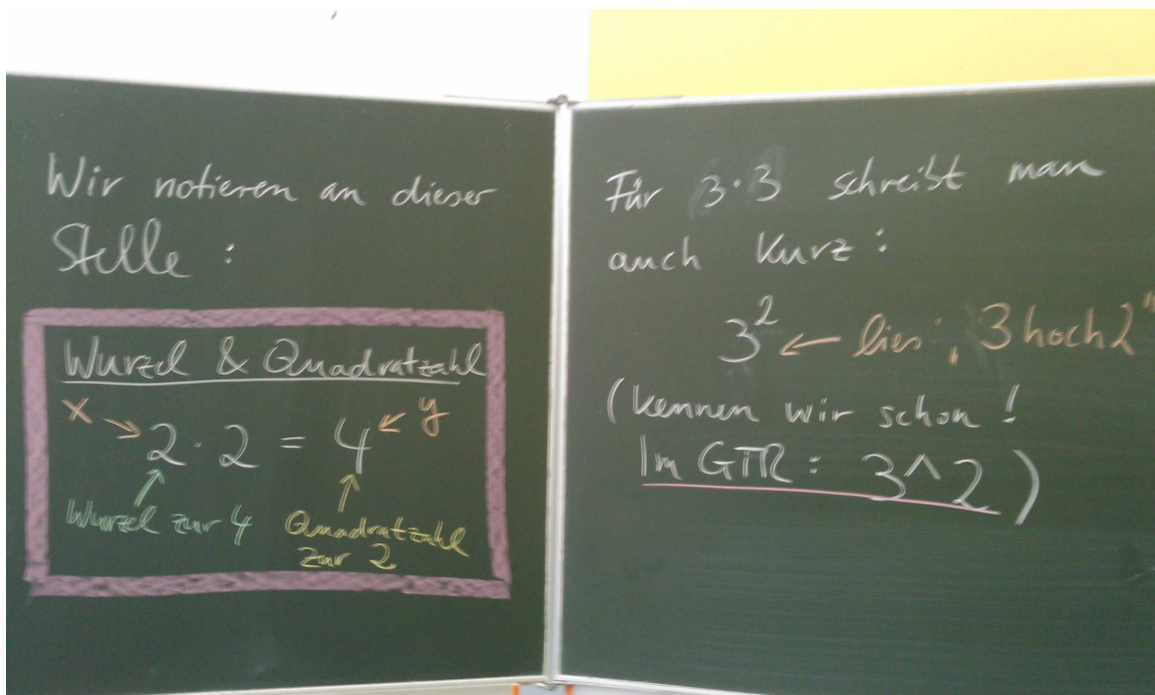 Wir notieren an dieser
Stelle :
Wurzel & Quadratzahl
x → 2 · 2 = 4 ← y
Wurzel zur 4
Quadratzahl
zur 2
Für 3·3 schreibt man
auch kurz :
3² ← lies: „3 hoch 2"
(kennen wir schon !
Im GTR : 3^2 )